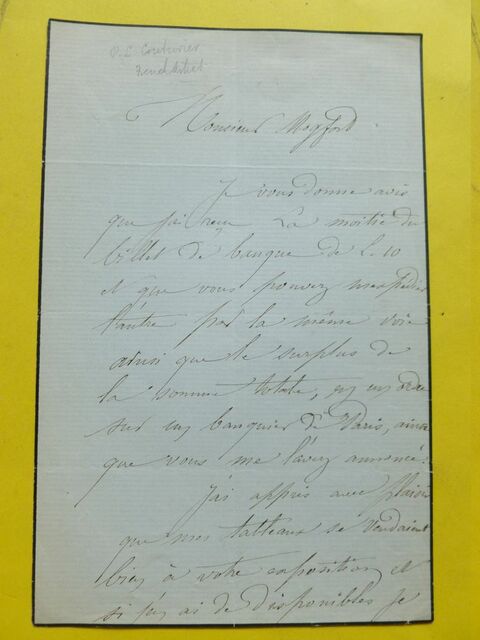 P. L. Couturier
French Artist
Monsieur Mogford
Je vous donne avis
que j'ai reçu la moitié du
billet de banque de L. 10
et que vous pouvez m'expédier
l'autre par la même voie
ainsi que le surplus de
la somme totale, en un ordre
sur un banquier de Paris, ainsi
que vous me l'avez annoncé.
J'ai appris avec plaisir
que mes tableaux se vendaient
bien à votre exposition et
si j'en ai de disponibles je